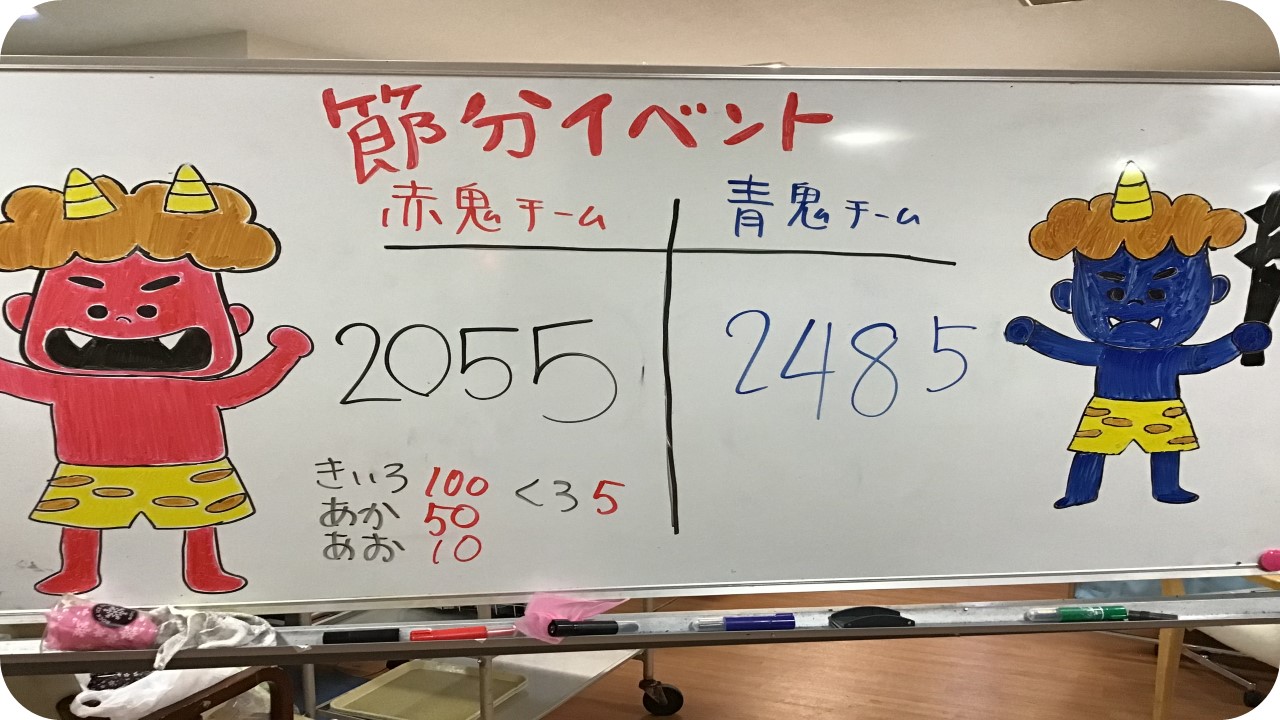 節分イベント
赤鬼チーム 青鬼チーム
2055 2485
きいろ 100 くろ 5
あか 50
あお 10